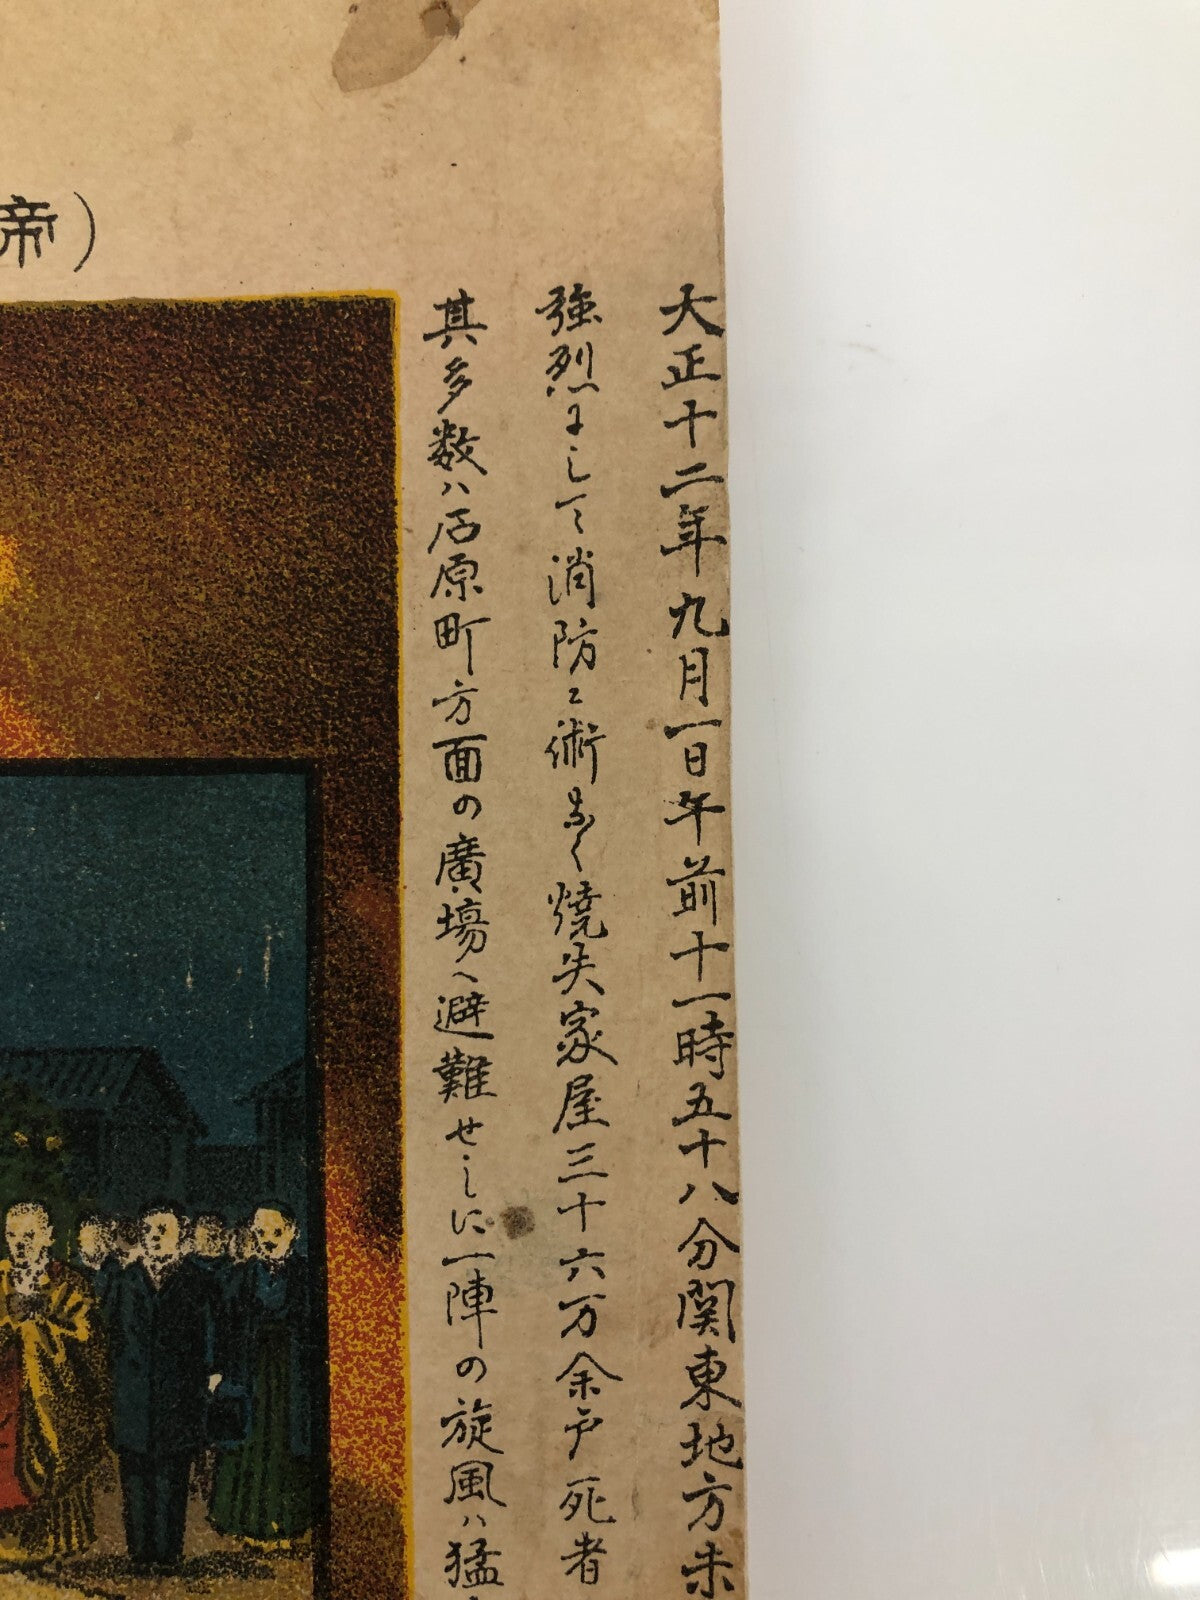 帝)
大正十二年九月一日午前十一時五十八分関東地方未
強烈にして消防に術なく焼失家屋三十六万余戸死者
其多数ハ石原町方面の廣場へ避難せしに一陣の旋風ハ猛